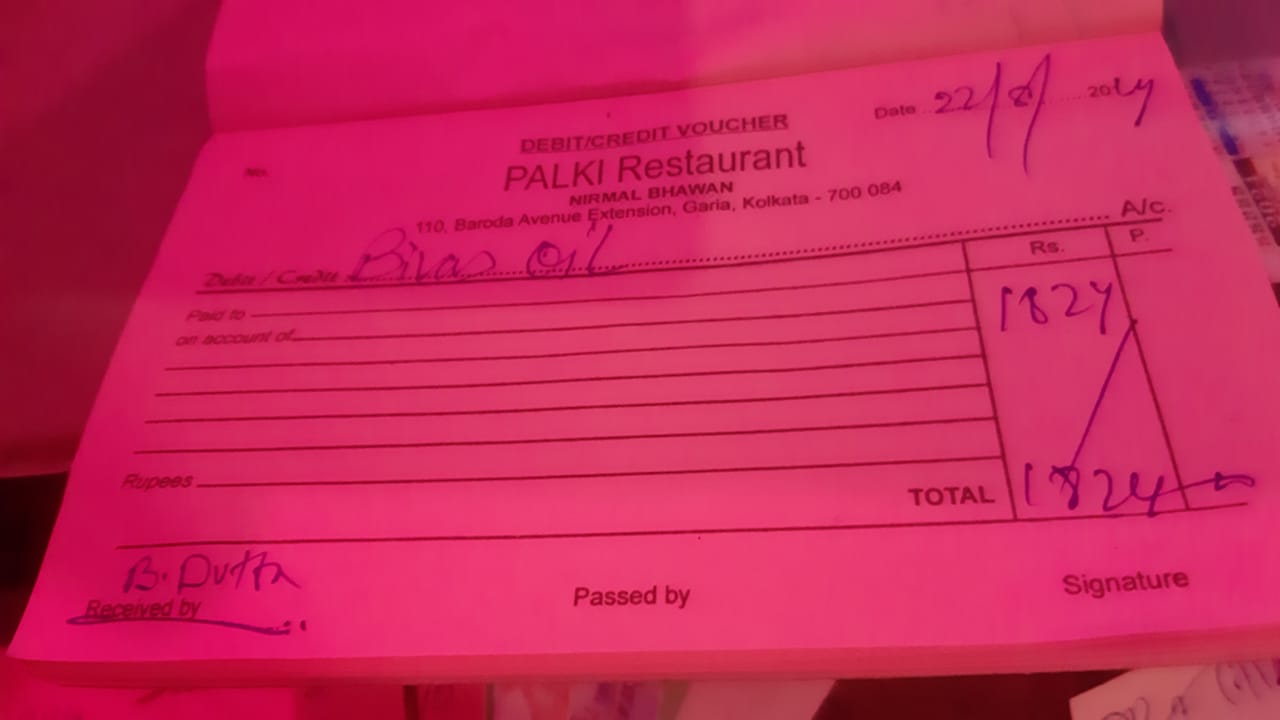 DEBIT/CREDIT VOUCHER
Date 22/8/2024
No.
PALKI Restaurant
NIRMAL BHAWAN
110, Baroda Avenue Extension, Garia, Kolkata - 700 084
Debit / Credit Bivas Oil A/c.
Rs. P.
Paid to
1824
on account of
Rupees
TOTAL 1824
B. Dutta
Received by Passed by Signature